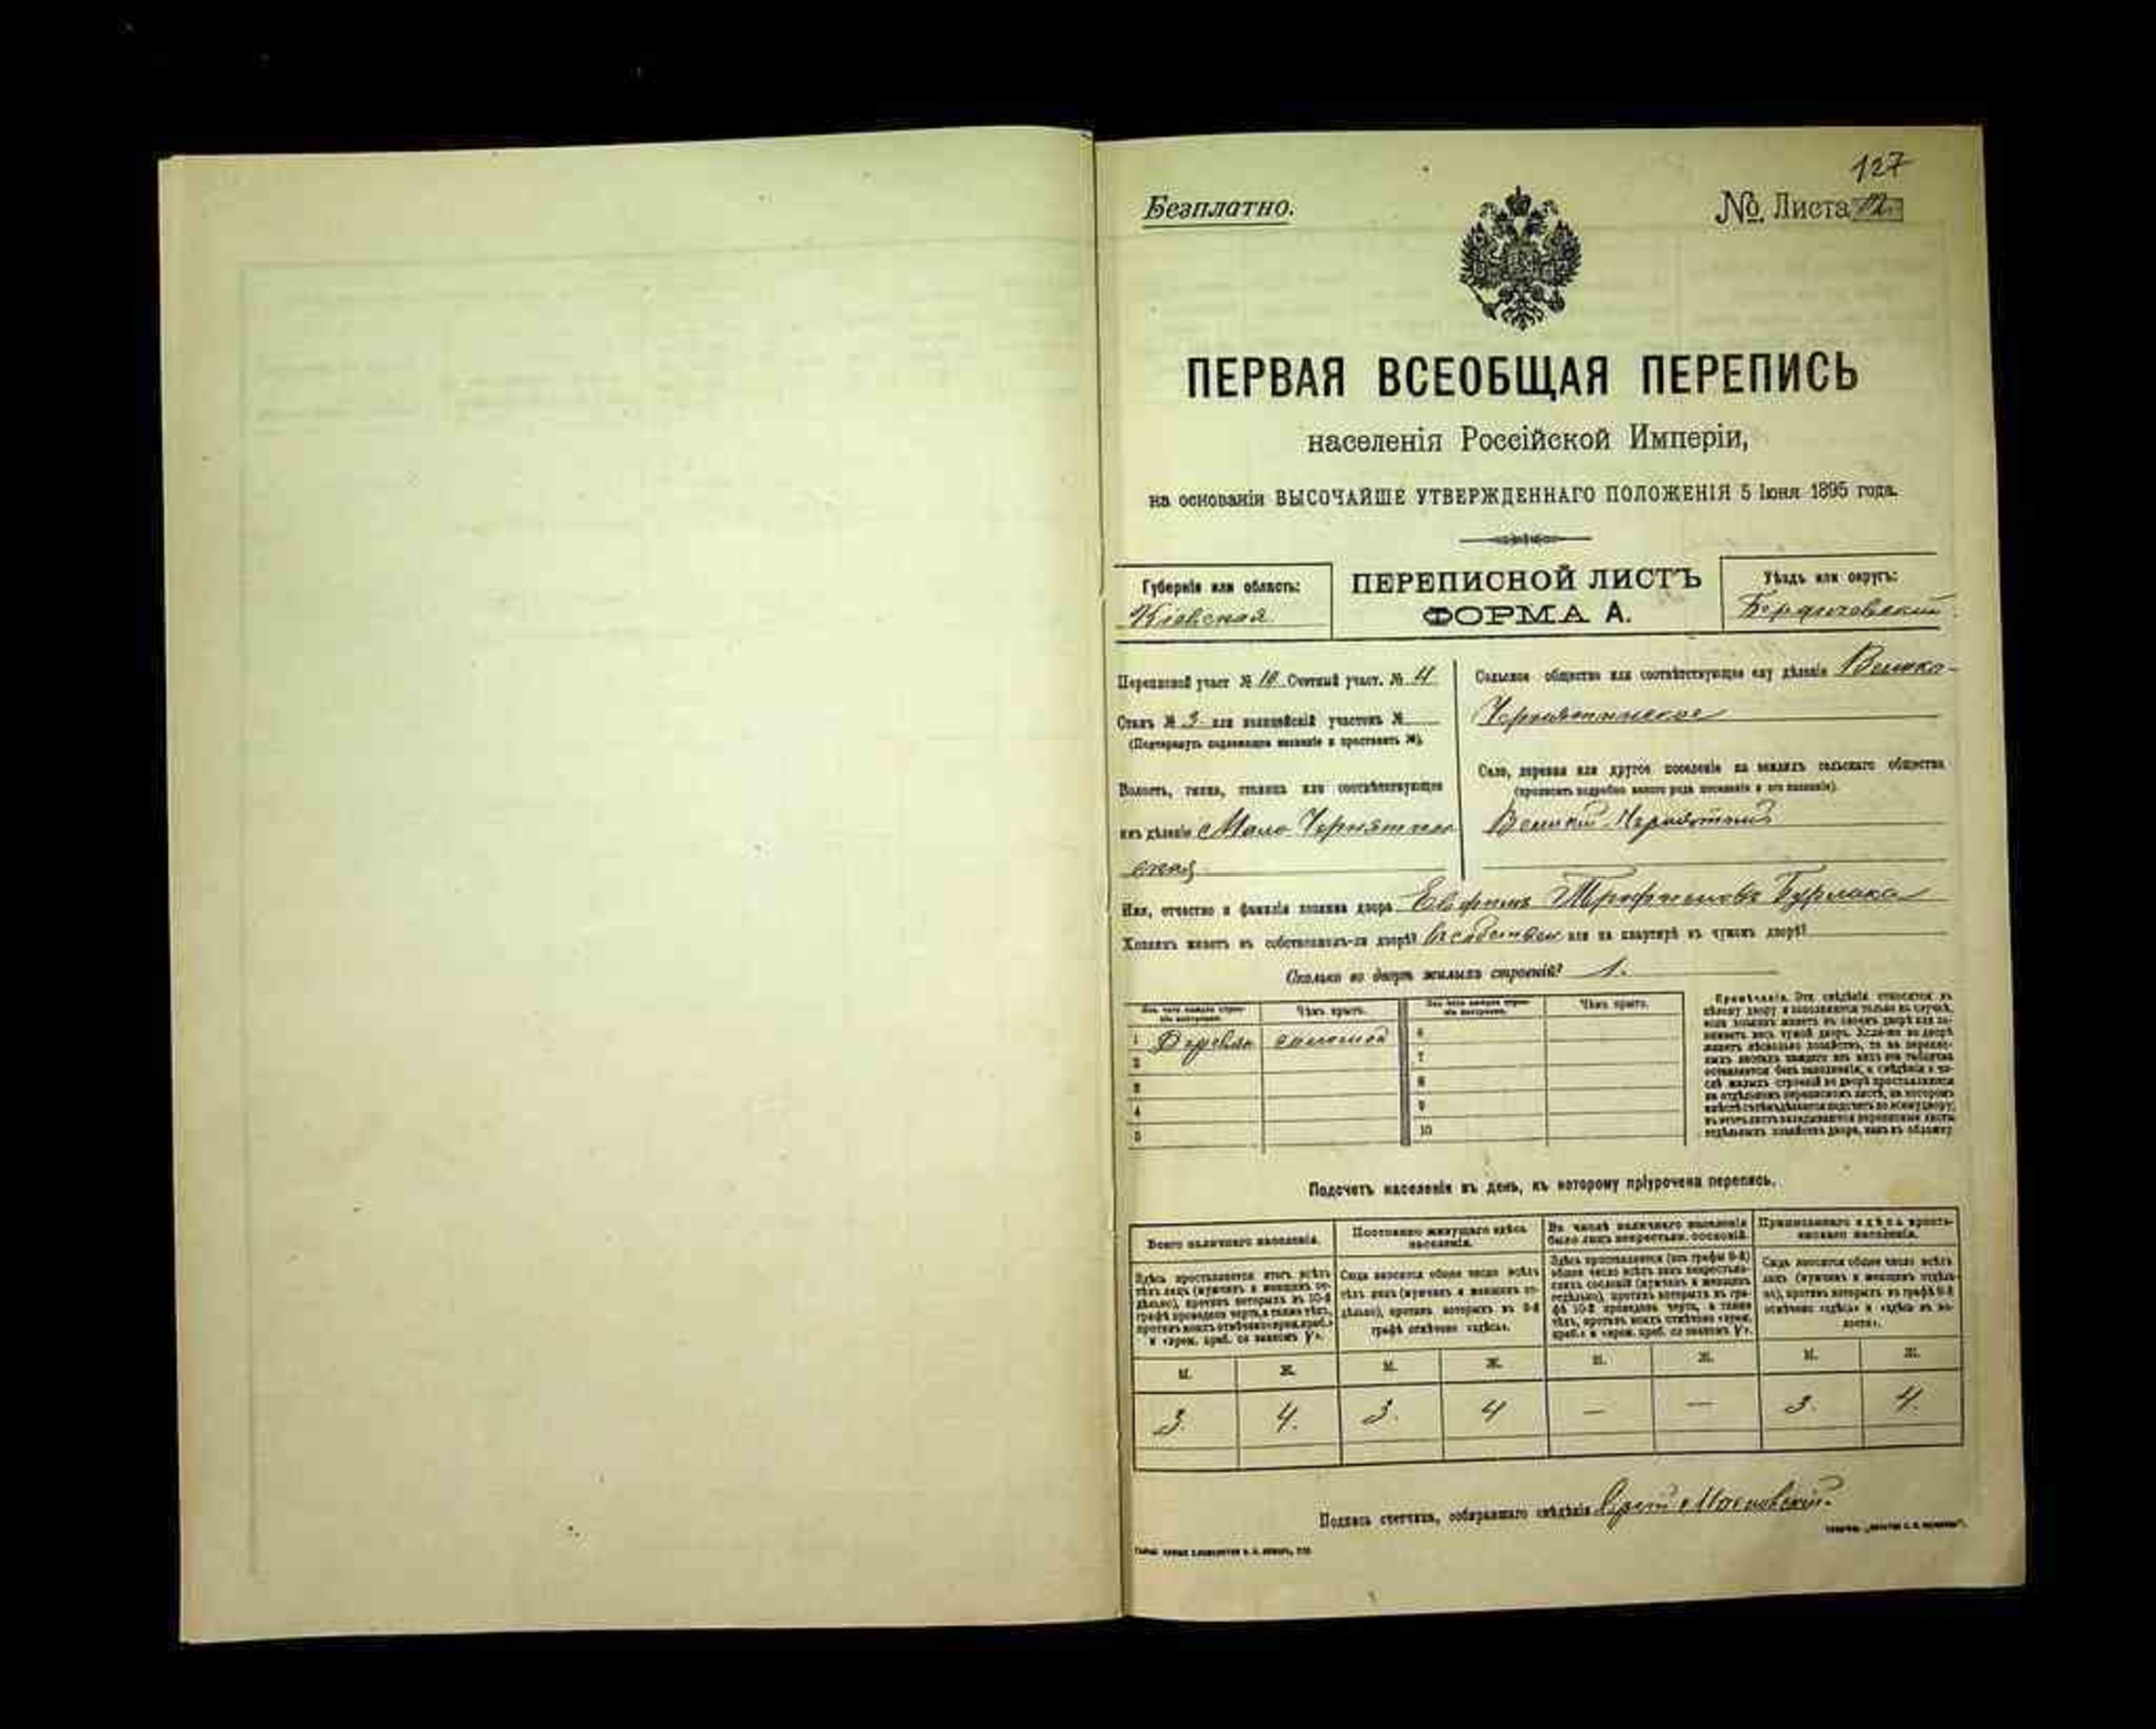 127
Безплатно.
№ Листа 12.
ПЕРВАЯ ВСЕОБЩАЯ ПЕРЕПИСЬ
населенія Россійской Имперіи,
на основаніи ВЫСОЧАЙШЕ УТВЕРЖДЕННАГО ПОЛОЖЕНІЯ 5 Іюня 1895 года.
Губернія или область:
Кіевская
ПЕРЕПИСНОЙ ЛИСТЪ
ФОРМА А.
Уѣздъ или округъ:
Бердичевскій
Переписной участ. № 10 Счетный участ. № 4
Станъ № 3 или полицейскій участокъ №
(Подчеркнуть подлежащее названіе и проставить №).
Волость, гмина, станица или соотвѣтствующее
имъ дѣленіе Мало-Чернятин
ская
Сельское общество или соотвѣтствующее ему дѣленіе Велико-
Чернятинское
Село, деревня или другое поселеніе на земляхъ сельскаго общества
(прописать подробно какого рода поселеніе и его названіе).
Великій Чернятинъ
Имя, отчество и фамилія хозяина двора Евфимъ Трофимовъ Бурлака
Хозяинъ живетъ въ собственномъ-ли дворѣ? или на квартирѣ въ чужомъ дворѣ?
Сколько во дворѣ жилыхъ строеній? 1.
Изъ чего каждое строеніе построено. Чѣмъ крыто. Изъ чего каждое строеніе построено. Чѣмъ крыто.
1 Дерева соломой 6
2 7
3 8
4 9
5 10
Примѣчаніе. Эти свѣдѣнія относятся къ
цѣлому двору и заполняются только въ случаѣ,
если хозяинъ живетъ въ своемъ дворѣ или за-
нимаетъ весь чужой дворъ. Если-же во дворѣ
живетъ нѣсколько хозяйствъ, то на перепис-
ныхъ листахъ каждаго изъ нихъ эта табличка
оставляется безъ заполненія, а свѣдѣнія о чи-
слѣ жилыхъ строеній во дворѣ проставляются
на отдѣльномъ переписномъ листѣ, на которомъ
Подсчетъ населенія въ день, къ которому пріурочена перепись.
Всего наличнаго населенія. Постоянно живущаго здѣсь населенія. Въ числѣ наличнаго населенія было лицъ некрестьян. сословій. Приписаннаго здѣсь крестьянскаго населенія.
Здѣсь проставляется итогъ всѣхъ
тѣхъ лицъ (мужчинъ и женщинъ от-
дѣльно), противъ которыхъ въ 10-й
графѣ проведена черта, а также тѣхъ,
противъ коихъ отмѣчено «врем. преб.»
и «врем. преб. со знакомъ V».
Сюда вносится общее число всѣхъ
тѣхъ лицъ (мужчинъ и женщинъ от-
дѣльно), противъ которыхъ въ 9-й
графѣ отмѣчено «здѣсь».
Здѣсь проставляется (изъ графы 9-й)
общее число всѣхъ лицъ некрестьян-
скихъ сословій (мужчинъ и женщинъ
отдѣльно), противъ которыхъ въ гра-
фѣ 10-й проведена черта, а также
тѣхъ, противъ коихъ отмѣчено «врем.
преб.» и «врем. преб. со знакомъ V».
Сюда вносится общее число всѣхъ
лицъ (мужчинъ и женщинъ отдѣль-
но), противъ которыхъ въ графѣ 8-й
отмѣчено «здѣсь» и «здѣсь въ во-
лости».
М. Ж. М. Ж. М. Ж. М. Ж.
3. 4. 3. 4 — — 3. 4.
Подпись счетчика, собиравшаго свѣдѣнія